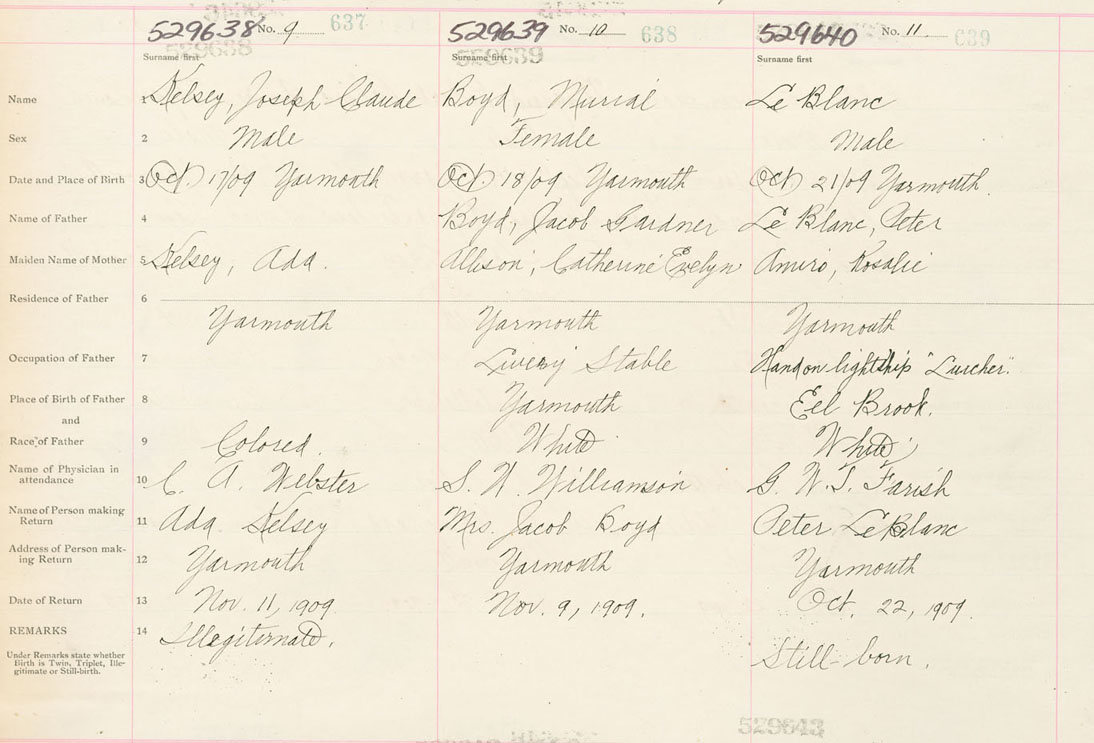 529638 No. 9 637 529639 No. 10 638 529640 No. 11 639
529638 529639
Surname first Surname first Surname first
Name 1 Kelsey, Joseph Claude Boyd, Murial Le Blanc
Sex 2 Male Female Male
Date and Place of Birth 3 Oct. 17/09 Yarmouth Oct. 18/09 Yarmouth Oct. 21/09 Yarmouth.
Name of Father 4 Boyd, Jacob Gardner Le Blanc, Peter
Maiden Name of Mother 5 Kelsey, Ada. Allison, Catherine Evelyn Amiro, Rosalie
Residence of Father 6
Yarmouth Yarmouth Yarmouth
Occupation of Father 7 Livery Stable Hand on lightship "Lurcher".
Place of Birth of Father 8 Yarmouth Eel Brook.
and
Race of Father 9 Colored. White White
Name of Physician in
attendance 10 C. A. Webster S. W. Williamson G. W. T. Farish
Name of Person making
Return 11 Ada Kelsey Mrs. Jacob Boyd Peter Le Blanc
Address of Person mak-
ing Return 12 Yarmouth Yarmouth Yarmouth
Date of Return 13 Nov. 11, 1909. Nov. 9, 1909. Oct. 22, 1909.
REMARKS 14 Illegitimate.
Under Remarks state whether
Birth is Twin, Triplet, Ille-
gitimate or Still-birth. Still-born.
529643